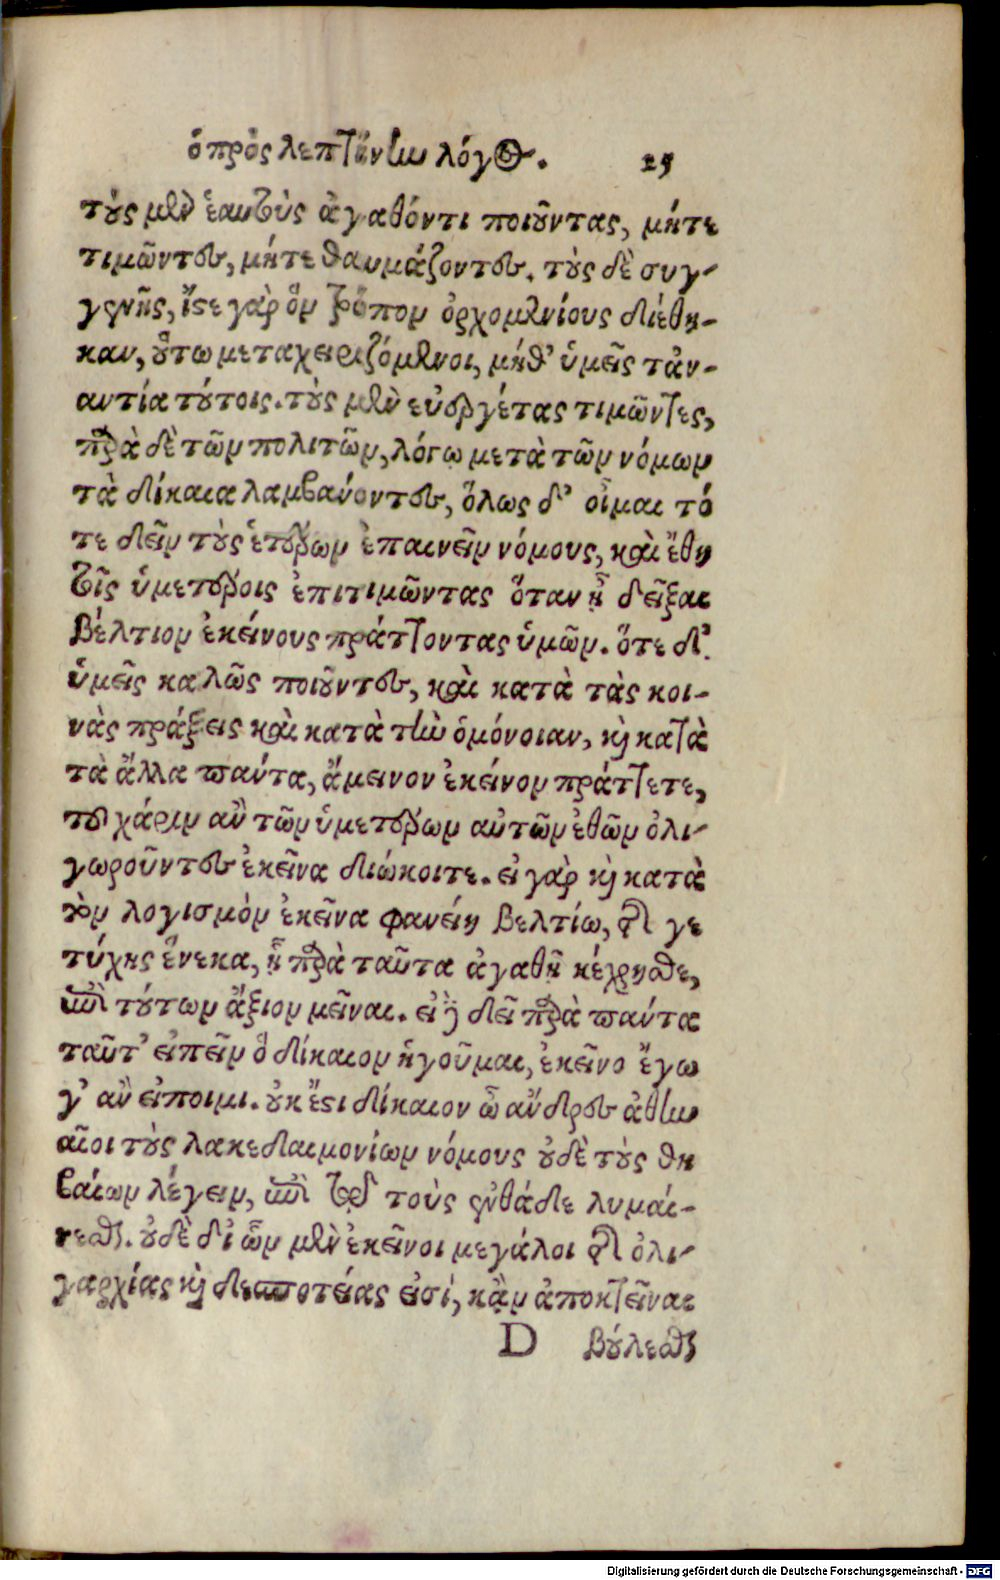 ὁ πρὸς λεπτίνην λόγος. 25
τοὺς μὲν ἑαυτοὺς ἀγαθόντι ποιοῦντας, μήτε
τιμῶντες, μήτε θαυμάζοντες. τοὺς δὲ συγ-
γενῆς, ἴστε γὰρ ὃν τρόπον ὀρχομενίους διέθη-
καν, οὕτω μεταχειριζόμενοι, μήθ' ὑμεῖς τἀν-
αντία τούτοις. τοὺς μὲν εὐεργέτας τιμῶντες,
παρὰ δὲ τῶν πολιτῶν, λόγω μετὰ τῶν νόμων
τὰ δίκαια λαμβάνοντες, ὅλως δ' οἶμαι τό
τε δεῖν τοὺς ἑτέρων ἐπαινεῖν νόμους, καὶ ἔθη
τοῖς ὑμετέροις ἐπιτιμῶντας ὅταν ᾖ δεῖξαι
βέλτιον ἐκείνους πράττοντας ὑμῶν. ὅτε δ'
ὑμεῖς καλῶς ποιοῦντες, καὶ κατὰ τὰς κοι-
νὰς πράξεις καὶ κατὰ τὴν ὁμόνοιαν, καὶ κατὰ
τὰ ἄλλα πάντα, ἄμεινον ἐκείνον πράττετε,
του χάριν ἂν τῶν ὑμετέρων αὐτῶν ἐθῶν ὀλι-
γωροῦντες ἐκεῖνα διώκοιτε. εἰ γὰρ καὶ κατὰ
τὸν λογισμὸν ἐκεῖνα φανείη βελτίω, τῆς γε
τύχης ἕνεκα, ᾗ παρὰ ταῦτα ἀγαθῇ κέχρησθε,
ἐπὶ τούτων ἄξιον μεῖναι. εἰ δὲ δεῖ παρὰ πάντα
ταῦτ' εἰπεῖν ὃ δίκαιον ἡγοῦμαι, ἐκεῖνο ἔγω
γ' ἂν εἴποιμι. οὐκ ἔστι δίκαιον ὦ ἄνδρες ἀθην
αῖοι τοὺς λακεδαιμονίων νόμους οὐδὲ τοὺς θη
βαίων λέγειν, ἐπὶ τῷ τοὺς ἐνθάδε λυμαί-
νεσθαι. οὐδὲ δι' ὧν μὲν ἐκεῖνοι μεγάλοι τῆς ὀλι-
γαρχίας καὶ δεσποτείας εἰσί, κἂν ἀποκτεῖναι
D βούλεσθαι
Digitalisierung gefördert durch die Deutsche Forschungsgemeinschaft - DFG